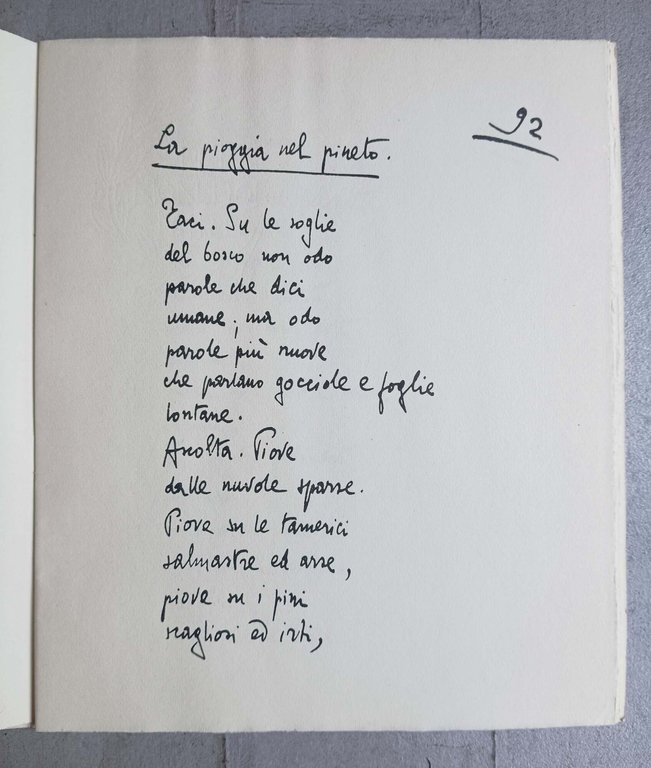 La pioggia nel pineto.
92
Taci. Su le soglie
del bosco non odo
parole che dici
umane; ma odo
parole più nuove
che parlano gocciole e foglie
lontane.
Ascolta. Piove
dalle nuvole sparse.
Piove su le tamerici
salmastre ed arse,
piove su i pini
scagliosi ed irti,